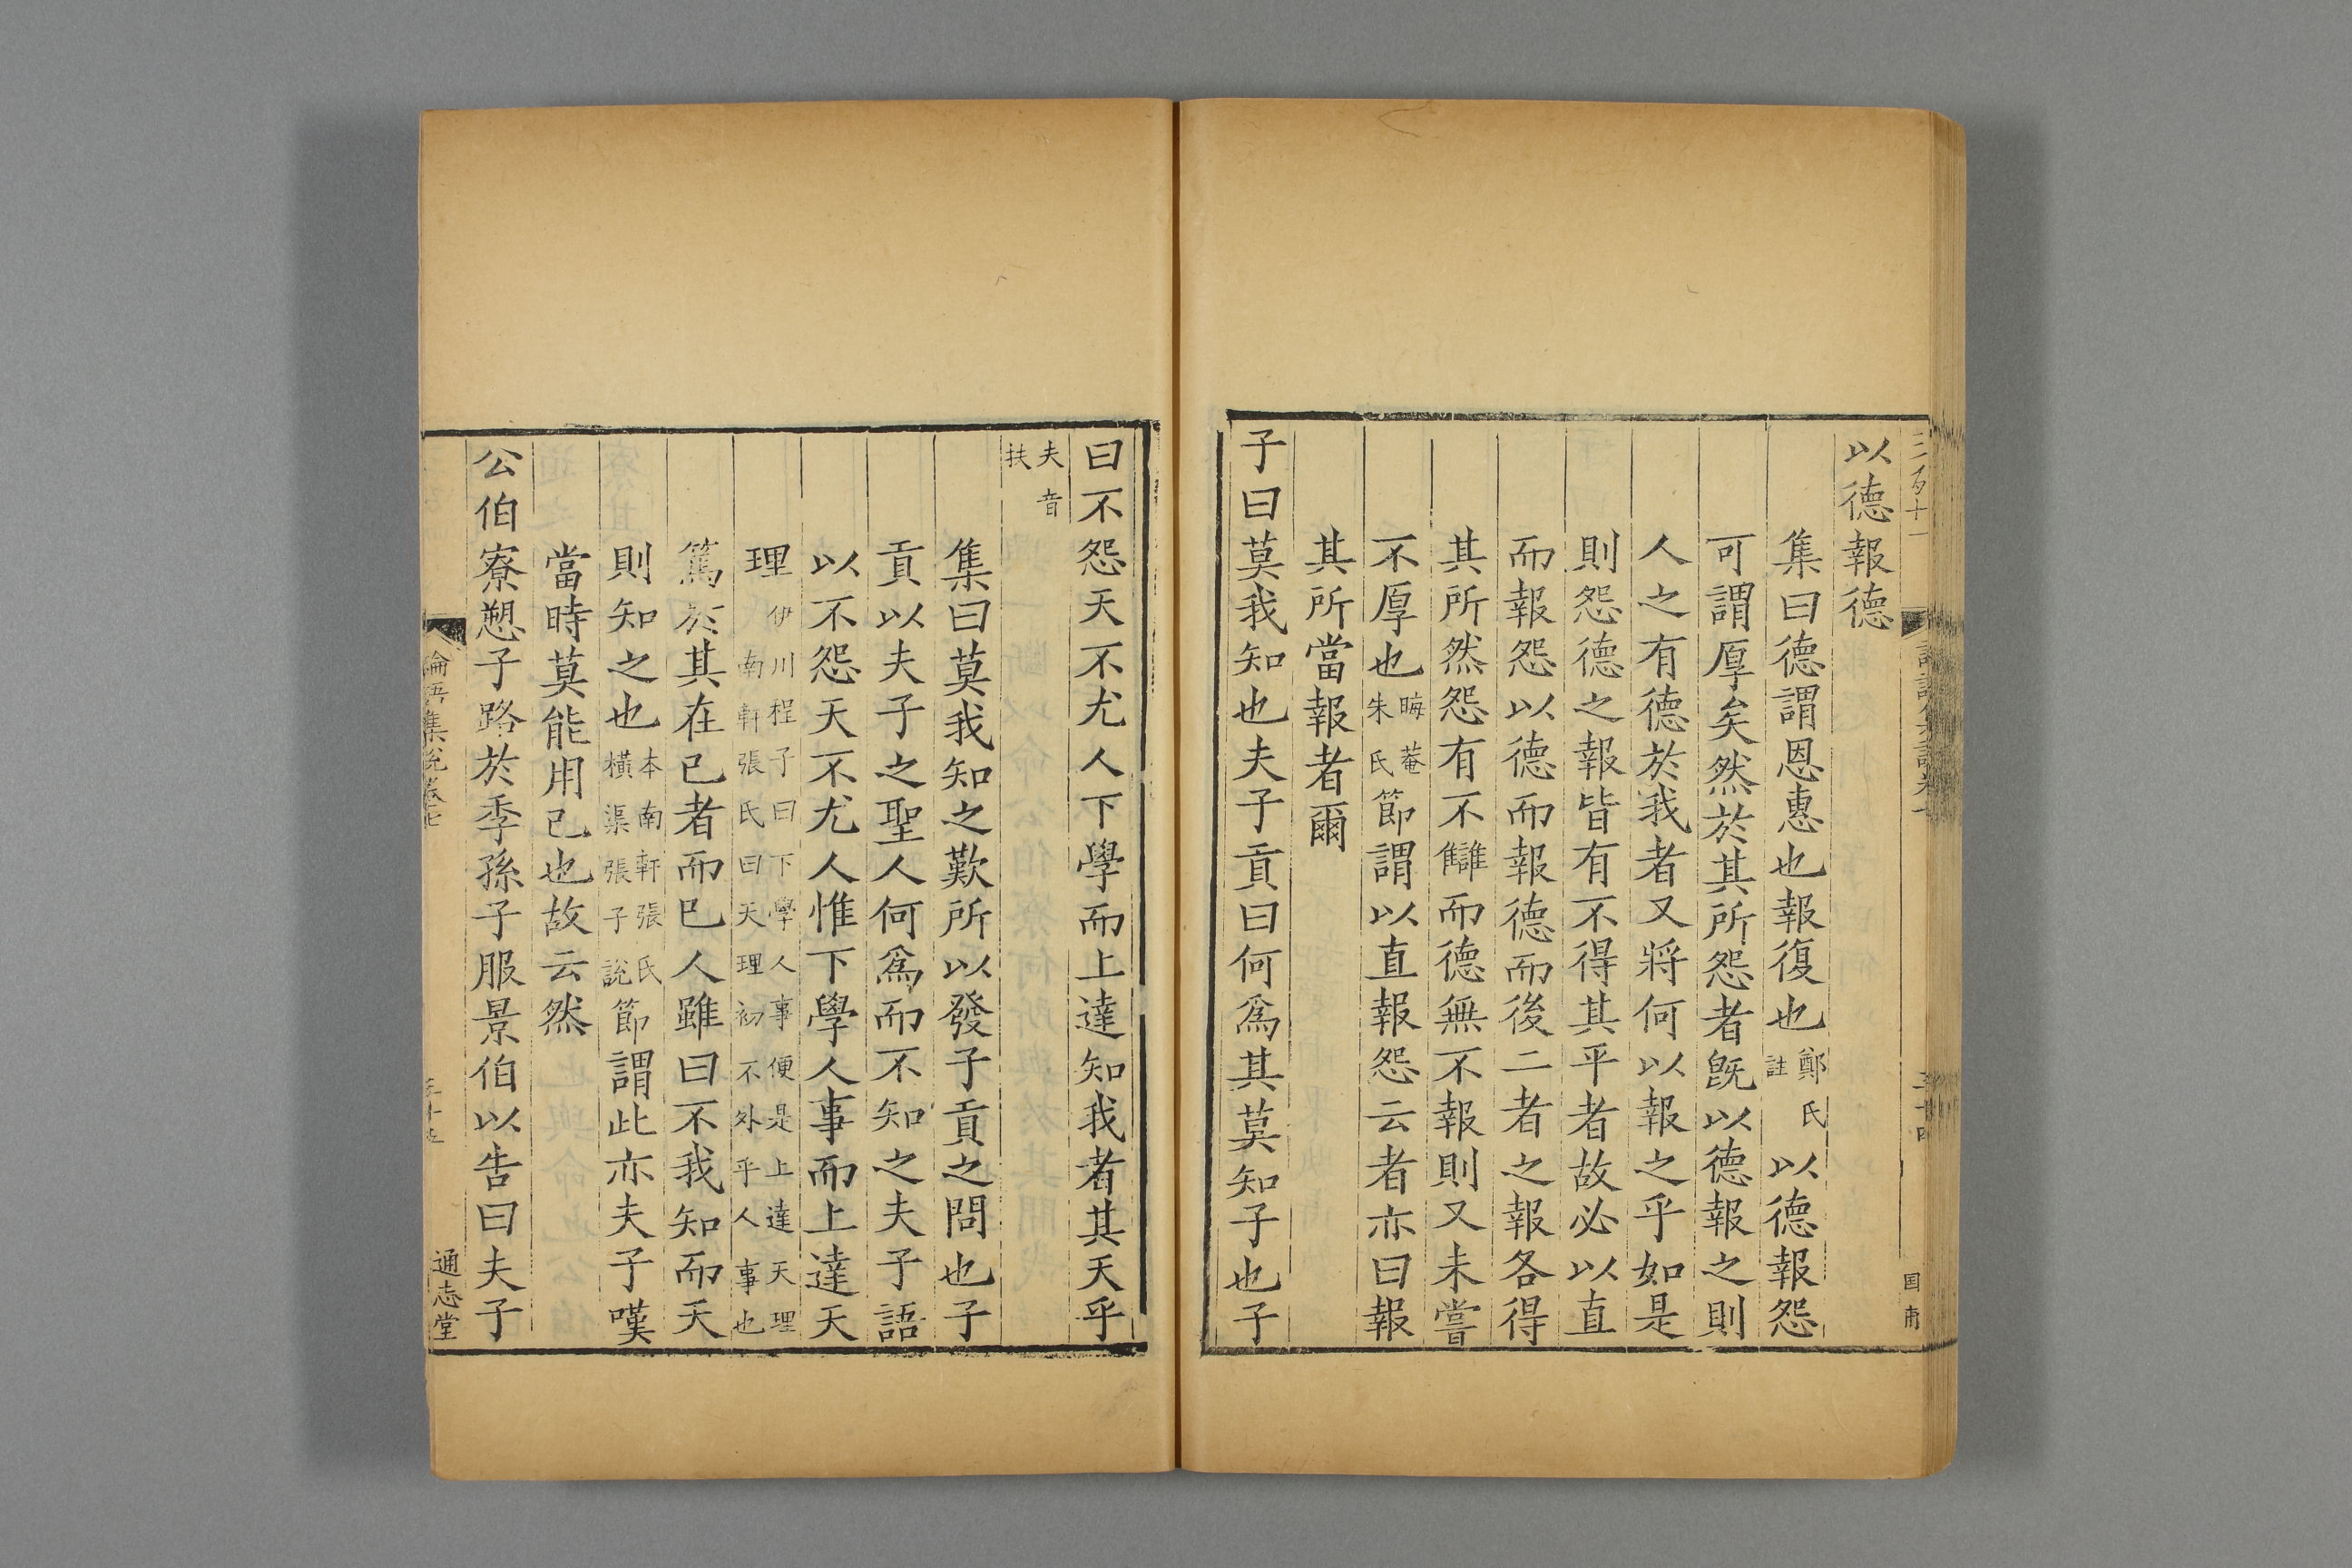 以德報德
集曰德謂恩惠也報復也鄭氏註以德報怨
可謂厚矣然於其所怨者旣以德報之則
人之有德於我者又將何以報之乎如是
則怨德之報皆有不得其平者故必以直
而報怨以德而報德而後二者之報各得
其所然怨有不讎而德無不報則又未嘗
不厚也晦菴朱氏節謂以直報怨云者亦曰報
其所當報者爾
子曰莫我知也夫子貢曰何爲其莫知子也子
国甫
曰不怨天不尤人下學而上達知我者其天乎
夫音扶
集曰莫我知之歎所以發子貢之問也子
貢以夫子之聖人何爲而不知之夫子語
以不怨天不尤人惟下學人事而上達天
理伊川程子曰下學人事便是上達天理南軒張氏曰天理初不外乎人事也
篤於其在已者而巳人雖曰不我知而天
則知之也本南軒張氏橫渠張子說節謂此亦夫子嘆
當時莫能用已也故云然
公伯寮愬子路於季孫子服景伯以告曰夫子
論語集說卷七
通志堂